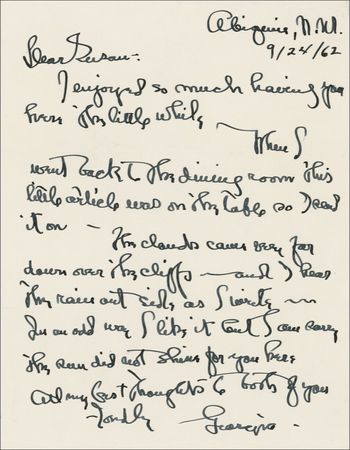 Abiquiu, N.M.
9/24/62
Dear Susan:
I enjoyed so much having you
here the little while
— When I
went back to the dining room this
little article was on the table so I send
it on —
The clouds came very far
down over the cliffs — and I hear
the rain out side as I write —
In an odd way I like it but I am sorry
the sun did not shine for you here
All my best thoughts to both of you
Fondly
Georgia.